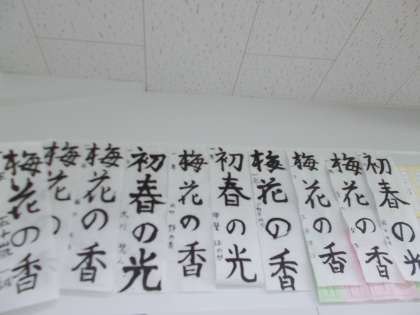 梅花の香
梅花
梅花の香
初春の光
梅花の香
初春の光
梅花の香
梅花の香
梅花の香
初春の光